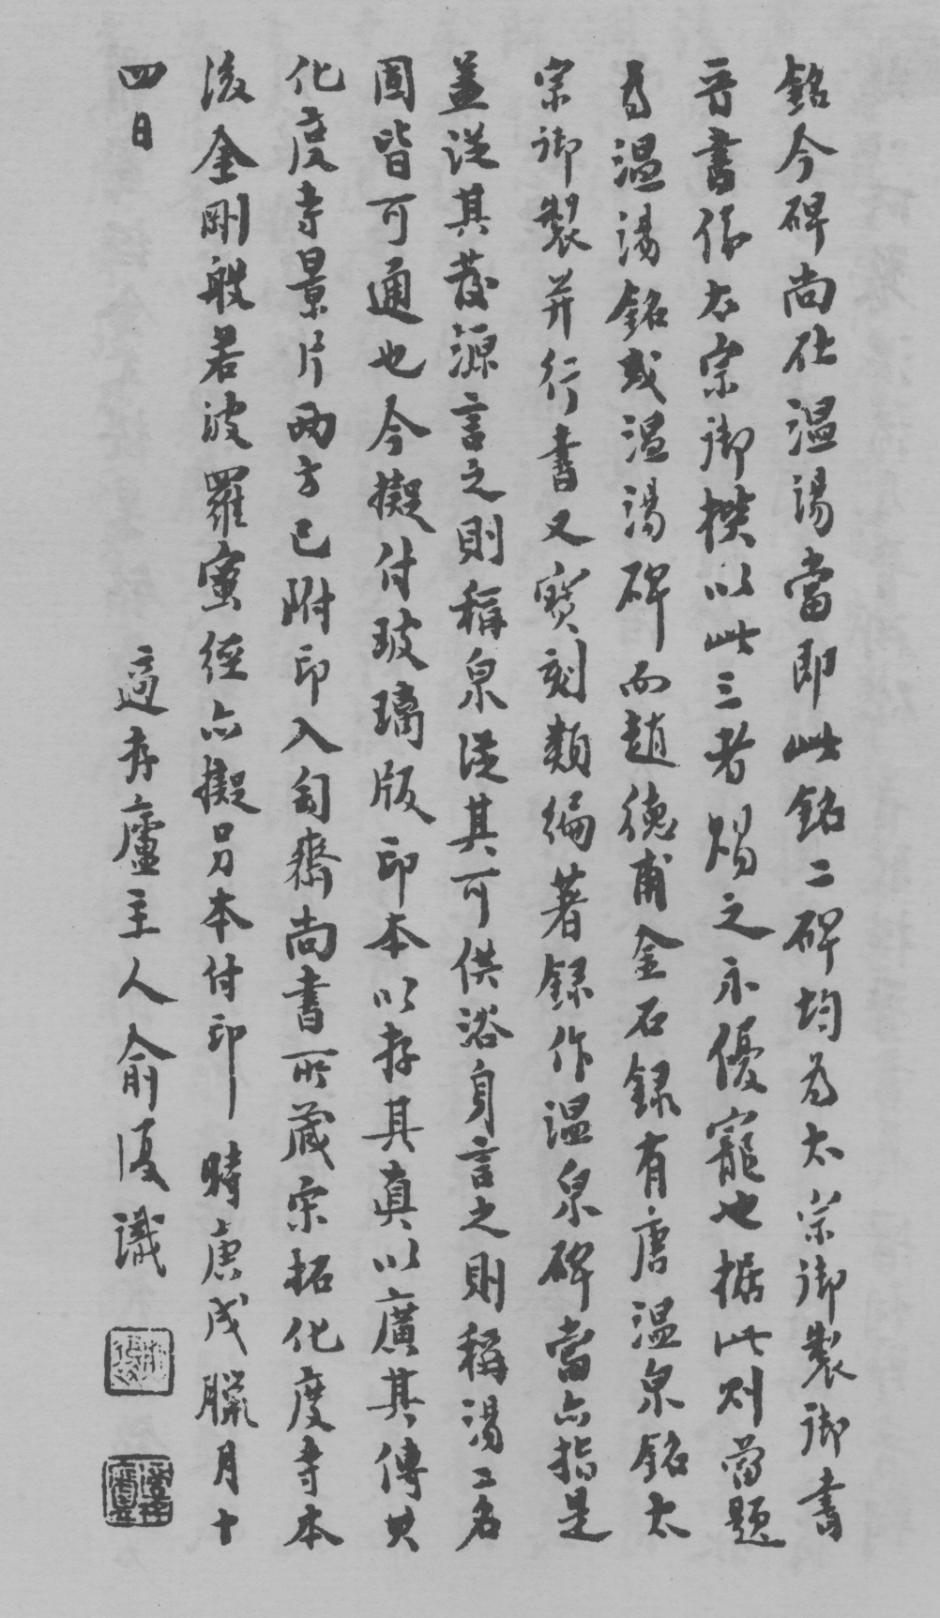 銘今碑尚在温湯當即此銘二碑均為太宗御製御書
晉書係太宗御撰以此三者賜之示優寵也據此則當題
為温湯銘或温湯碑而趙德甫金石録有唐温泉銘太
宗御製并行書又寶刻類编著録作温泉碑當亦指是
蓋從其發源言之則稱泉從其可供浴身言之則稱湯二名
固皆可通也今擬付玻璃版印本以存其真以廣其傳其
化度寺景片兩方已附印入匋齋尚書所藏宋拓化度寺本
後金剛般若波羅蜜經亦擬另本付印 時庚戌臘月十
四日
適存廬主人俞復識